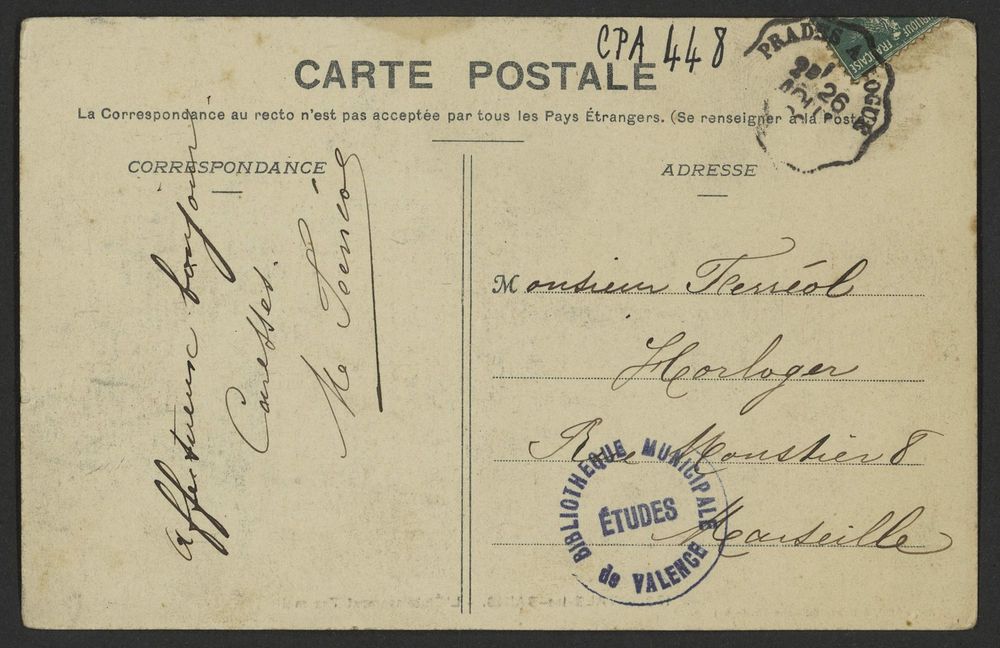 CPA 448
CARTE POSTALE
La Correspondance au recto n'est pas acceptée par tous les Pays Étrangers. (Se renseigner à la Poste
CORRESPONDANCE
ADRESSE
affectueux bonjour
Caresses.
Monsieur Ferréol
Horloger
Rue Moustier 8
Marseille
BIBLIOTHEQUE MUNICIPALE
ÉTUDES
de VALENCE
PRADES A
26
FRANÇAISE